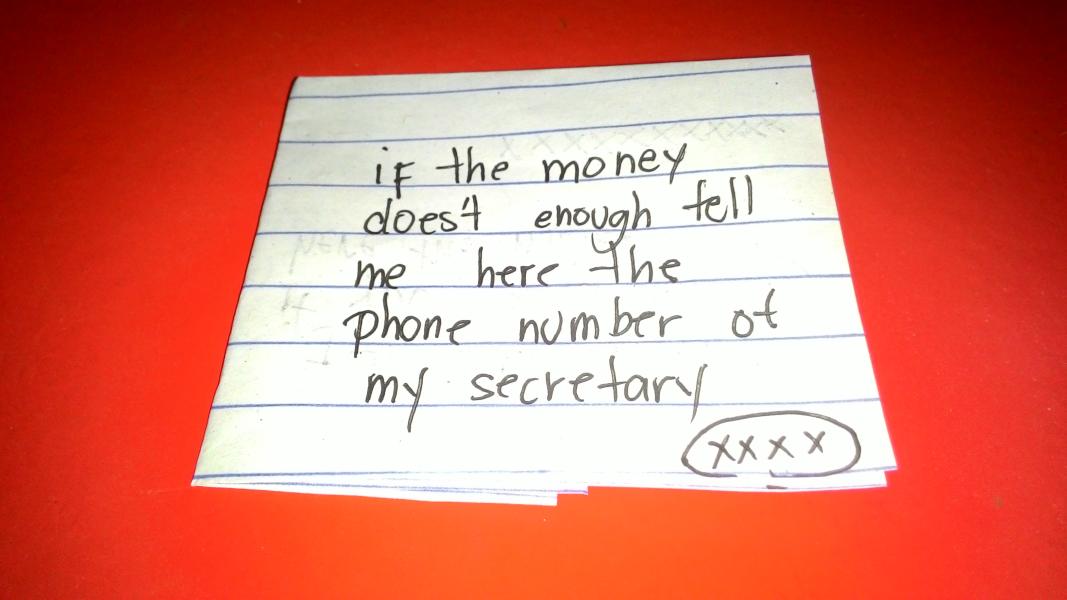 if the money
does't enough tell
me here the
phone number of
my secretary
xxxx